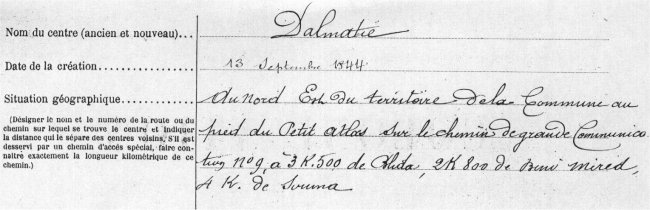 Nom du centre (ancien et nouveau)... Dalmatie
Date de la création................ 13 Septembre 1844
Situation géographique............ au nord Est du territoire de la Commune au
(Désigner le nom et le numéro de la route ou du
chemin sur lequel se trouve le centre et indiquer
la distance qui le sépare des centres voisins, S'il est
desservi par un chemin d'accès spécial, faire con-
naître exactement la longueur kilométrique de ce
chemin.)
pied du Petit atlas sur le chemin de grande Communica
tion n° 9, à 3 K. 500 de Blida, 2 K 800 de Beni mired,
4 K. de Souma